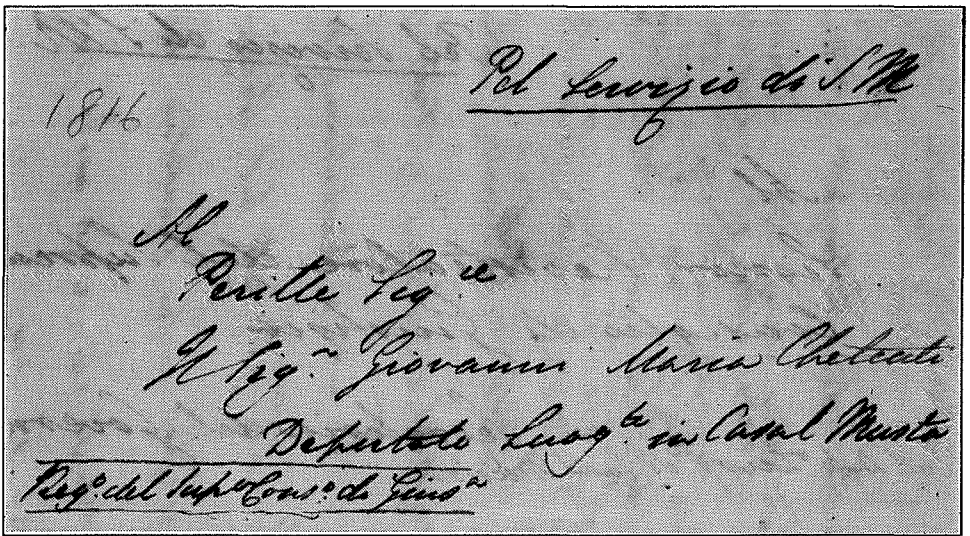 Pel Servizio di S. M
1816
Al
Perille Sigʳᵉ
Il Sigʳ Giovanni Maria
Deputato Luogᵗᵉ in Casal Musta
Regᵒ del Supᵒ Consᵒ di Giusᵃ